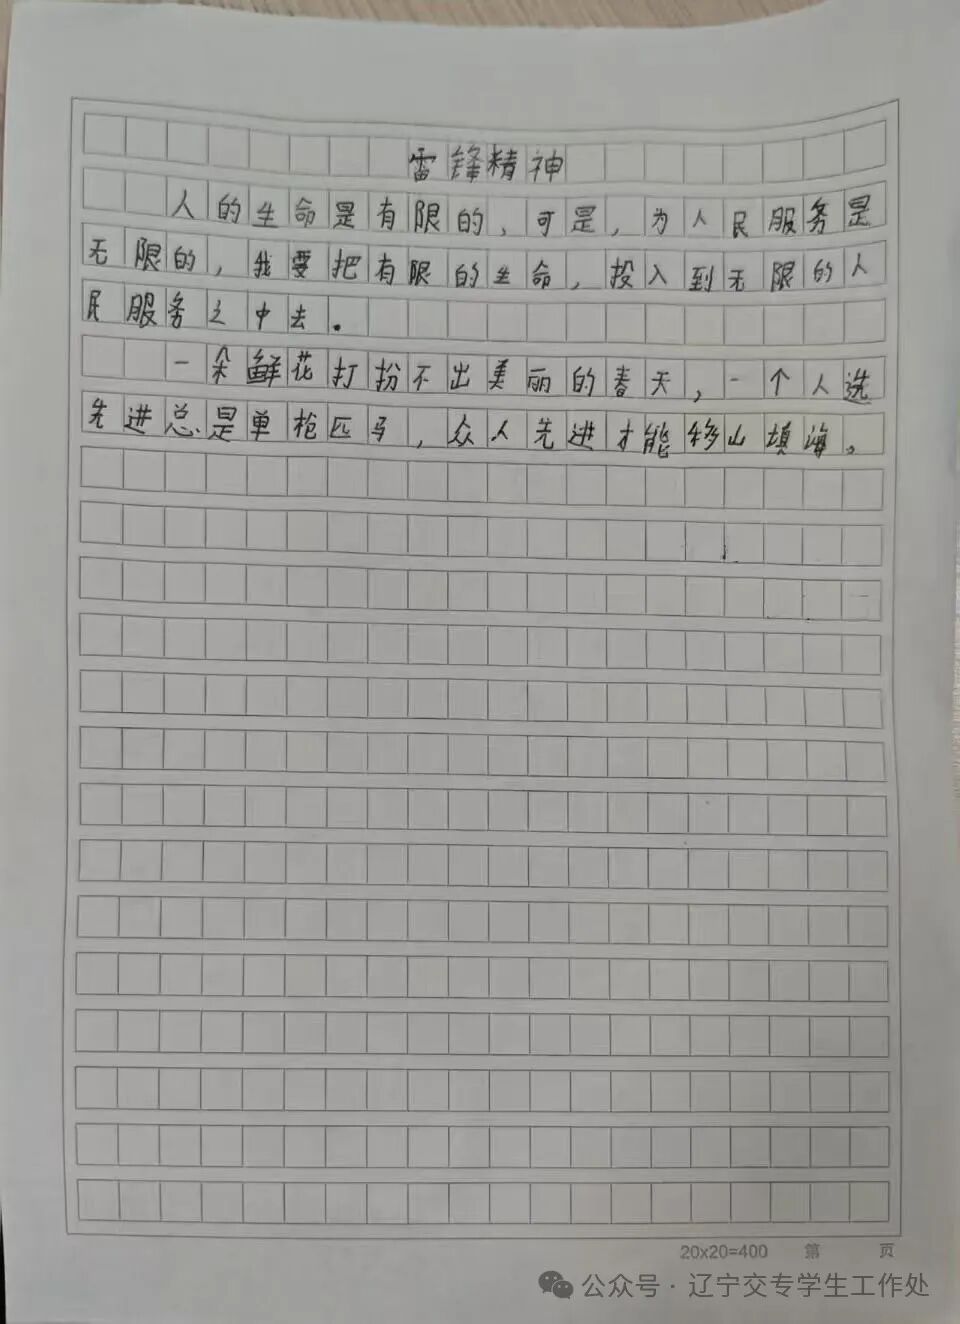 雷锋精神
人的生命是有限的,可是,为人民服务是
无限的,我要把有限的生命,投入到无限的人
民服务之中去.
一朵鲜花打扮不出美丽的春天,一个人选
先进总是单枪匹马,众人先进才能移山填海。
20x20=400 第 页
公众号·辽宁交专学生工作处